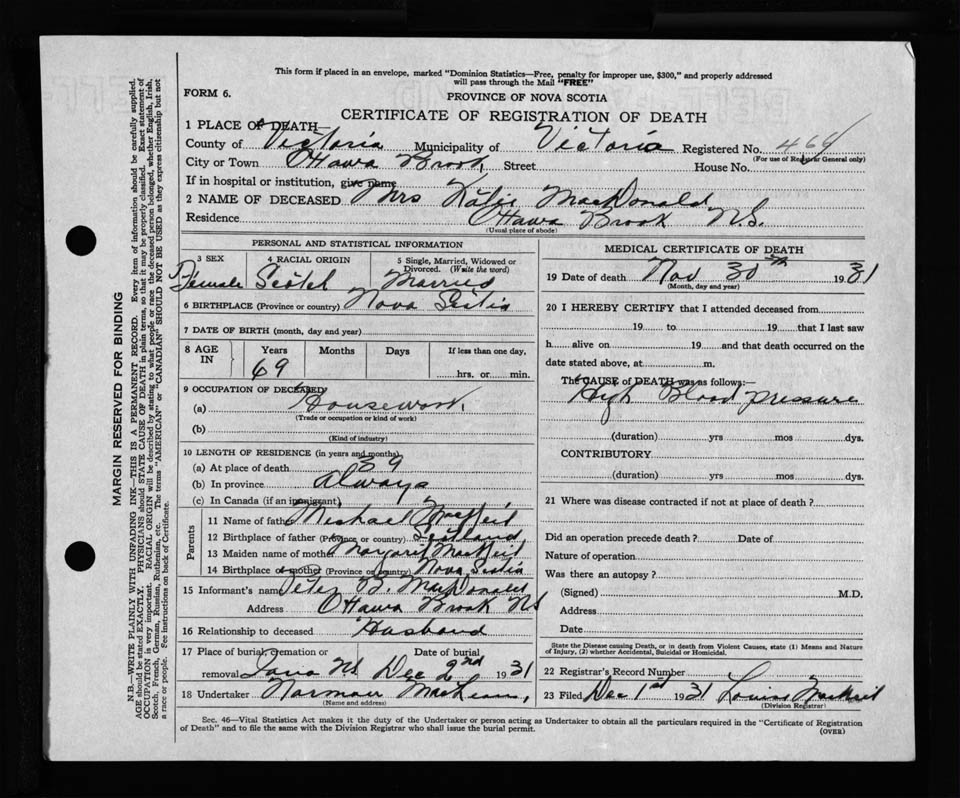 This form if placed in an envelope, marked "Dominion Statistics—Free, penalty for improper use, $300," and properly addressed
will pass through the Mail "FREE"
FORM 6.
PROVINCE OF NOVA SCOTIA
CERTIFICATE OF REGISTRATION OF DEATH
1 PLACE OF DEATH—
County of Victoria Municipality of Victoria Registered No. 464
(For use of Registrar General only)
City or Town Ottawa Brook, Street House No.
If in hospital or institution, give name
2 NAME OF DECEASED Mrs Katie MacDonald
Residence Ottawa Brook N.S.
(Usual place of abode)
PERSONAL AND STATISTICAL INFORMATION
3 SEX 4 RACIAL ORIGIN 5 Single, Married, Widowed or Divorced. (Write the word)
Female Scotch Married
6 BIRTHPLACE (Province or country) Nova Scotia
7 DATE OF BIRTH (month, day and year)
8 AGE IN Years Months Days If less than one day,
69 hrs. or min.
9 OCCUPATION OF DECEASED
(a) Housework,
(Trade or occupation or kind of work)
(b)
(Kind of industry)
10 LENGTH OF RESIDENCE (in years and months)
(a) At place of death 39
(b) In province Always
(c) In Canada (if an immigrant)
Parents
11 Name of father Michael MacNeil
12 Birthplace of father (Province or country) Scotland
13 Maiden name of mother Margaret MacNeil
14 Birthplace of mother (Province or Country) Nova Scotia
15 Informant's name Peter B. MacDonald
Address Ottawa Brook NS
16 Relationship to deceased Husband
17 Place of burial, cremation or Date of burial
removal Iona NS Dec 2nd 1931
18 Undertaker Norman MacLean,
(Name and address)
MEDICAL CERTIFICATE OF DEATH
19 Date of death Nov 30th 1931
(Month, day and year)
20 I HEREBY CERTIFY that I attended deceased from
19 to 19 that I last saw
h alive on 19 and that death occurred on the
date stated above, at m.
The CAUSE of DEATH was as follows:—
High Blood pressure
(duration) yrs mos dys.
CONTRIBUTORY
(duration) yrs mos dys.
21 Where was disease contracted if not at place of death?
Did an operation precede death? Date of
Nature of operation
Was there an autopsy?
(Signed) M.D.
Address
Date
State the Disease causing Death, or in death from Violent Causes, state (1) Means and Nature
of Injury, (2) whether Accidental, Suicidal or Homicidal.
22 Registrar's Record Number
23 Filed Dec 1st 1931 Louis MacNeil
(Division Registrar)
Sec. 46—Vital Statistics Act makes it the duty of the Undertaker or person acting as Undertaker to obtain all the particulars required in the "Certificate of Registration
of Death" and to file the same with the Division Registrar who shall issue the burial permit. (OVER)
MARGIN RESERVED FOR BINDING
N.B.—WRITE PLAINLY WITH UNFADING INK—THIS IS A PERMANENT RECORD. Every item of information should be carefully supplied.
AGE should be stated EXACTLY. PHYSICIANS should STATE CAUSE OF DEATH in plain terms, so that it may be properly classified. Exact statement of
OCCUPATION is very important. RACIAL ORIGIN will be described by stating to what people or race the deceased person belonged, whether English, Irish,
Scotch, French, German, Russian, Ruthenian, etc. The terms "AMERICAN" or "CANADIAN" SHOULD NOT BE USED as they express citizenship but not
a race or people. See instructions on back of Certificate.